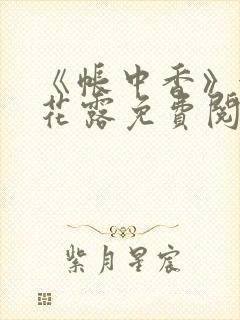 《帐中香》
花露免費閱
紫月星宸